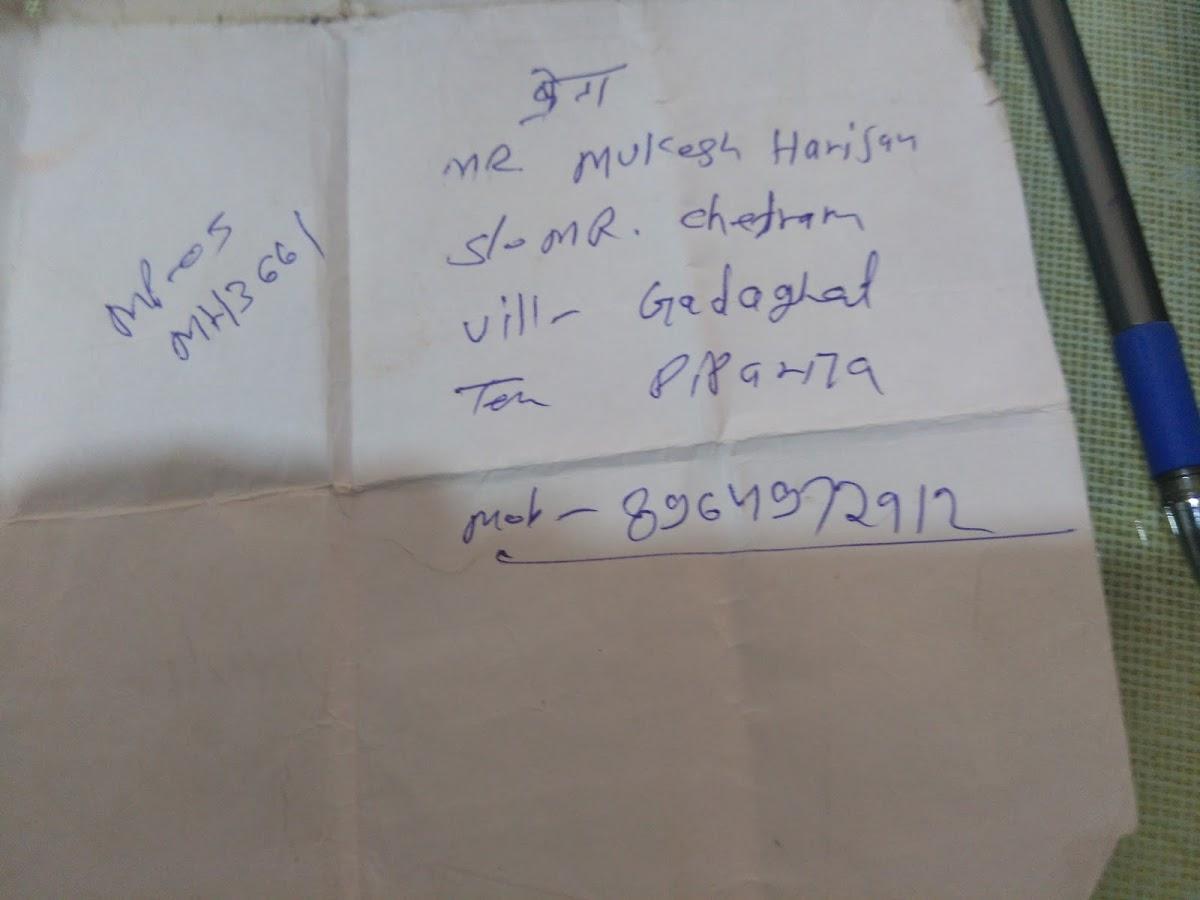 क्रेता
MR. Mukesh Harijan
S/o MR. Chetram
Vill- Gadaghat
Teh Pipariya
Mob- 8964972912
MP-05
MH3661